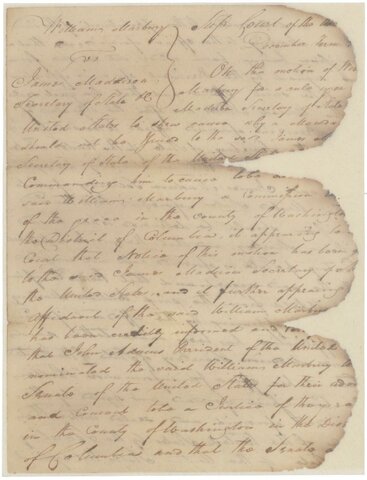 William Marbury } Supr Court of the
vs } December Term
James Maddison } On the motion of
Secretary of State } Marbury for a rule
Maddison Secretary of State
United States to shew cause why a Mandamus
should not be issued to the said James
Secretary of State of the United
Commanding him to cause to be
said William Marbury a Commission
of the peace in the county of Washington
the District of Columbia it appearing to
Court that Notice of this motion has been
to the said James Madison Secretary for
the United States, and it further appearing
affidavit of the said William
has been credibly informed and
that John Adams President of the United
nominated the said William Marbury to
Senate of the United States for their
and Consent to be a Justice of the
in the County of Washington in the
of Columbia and that the Senate